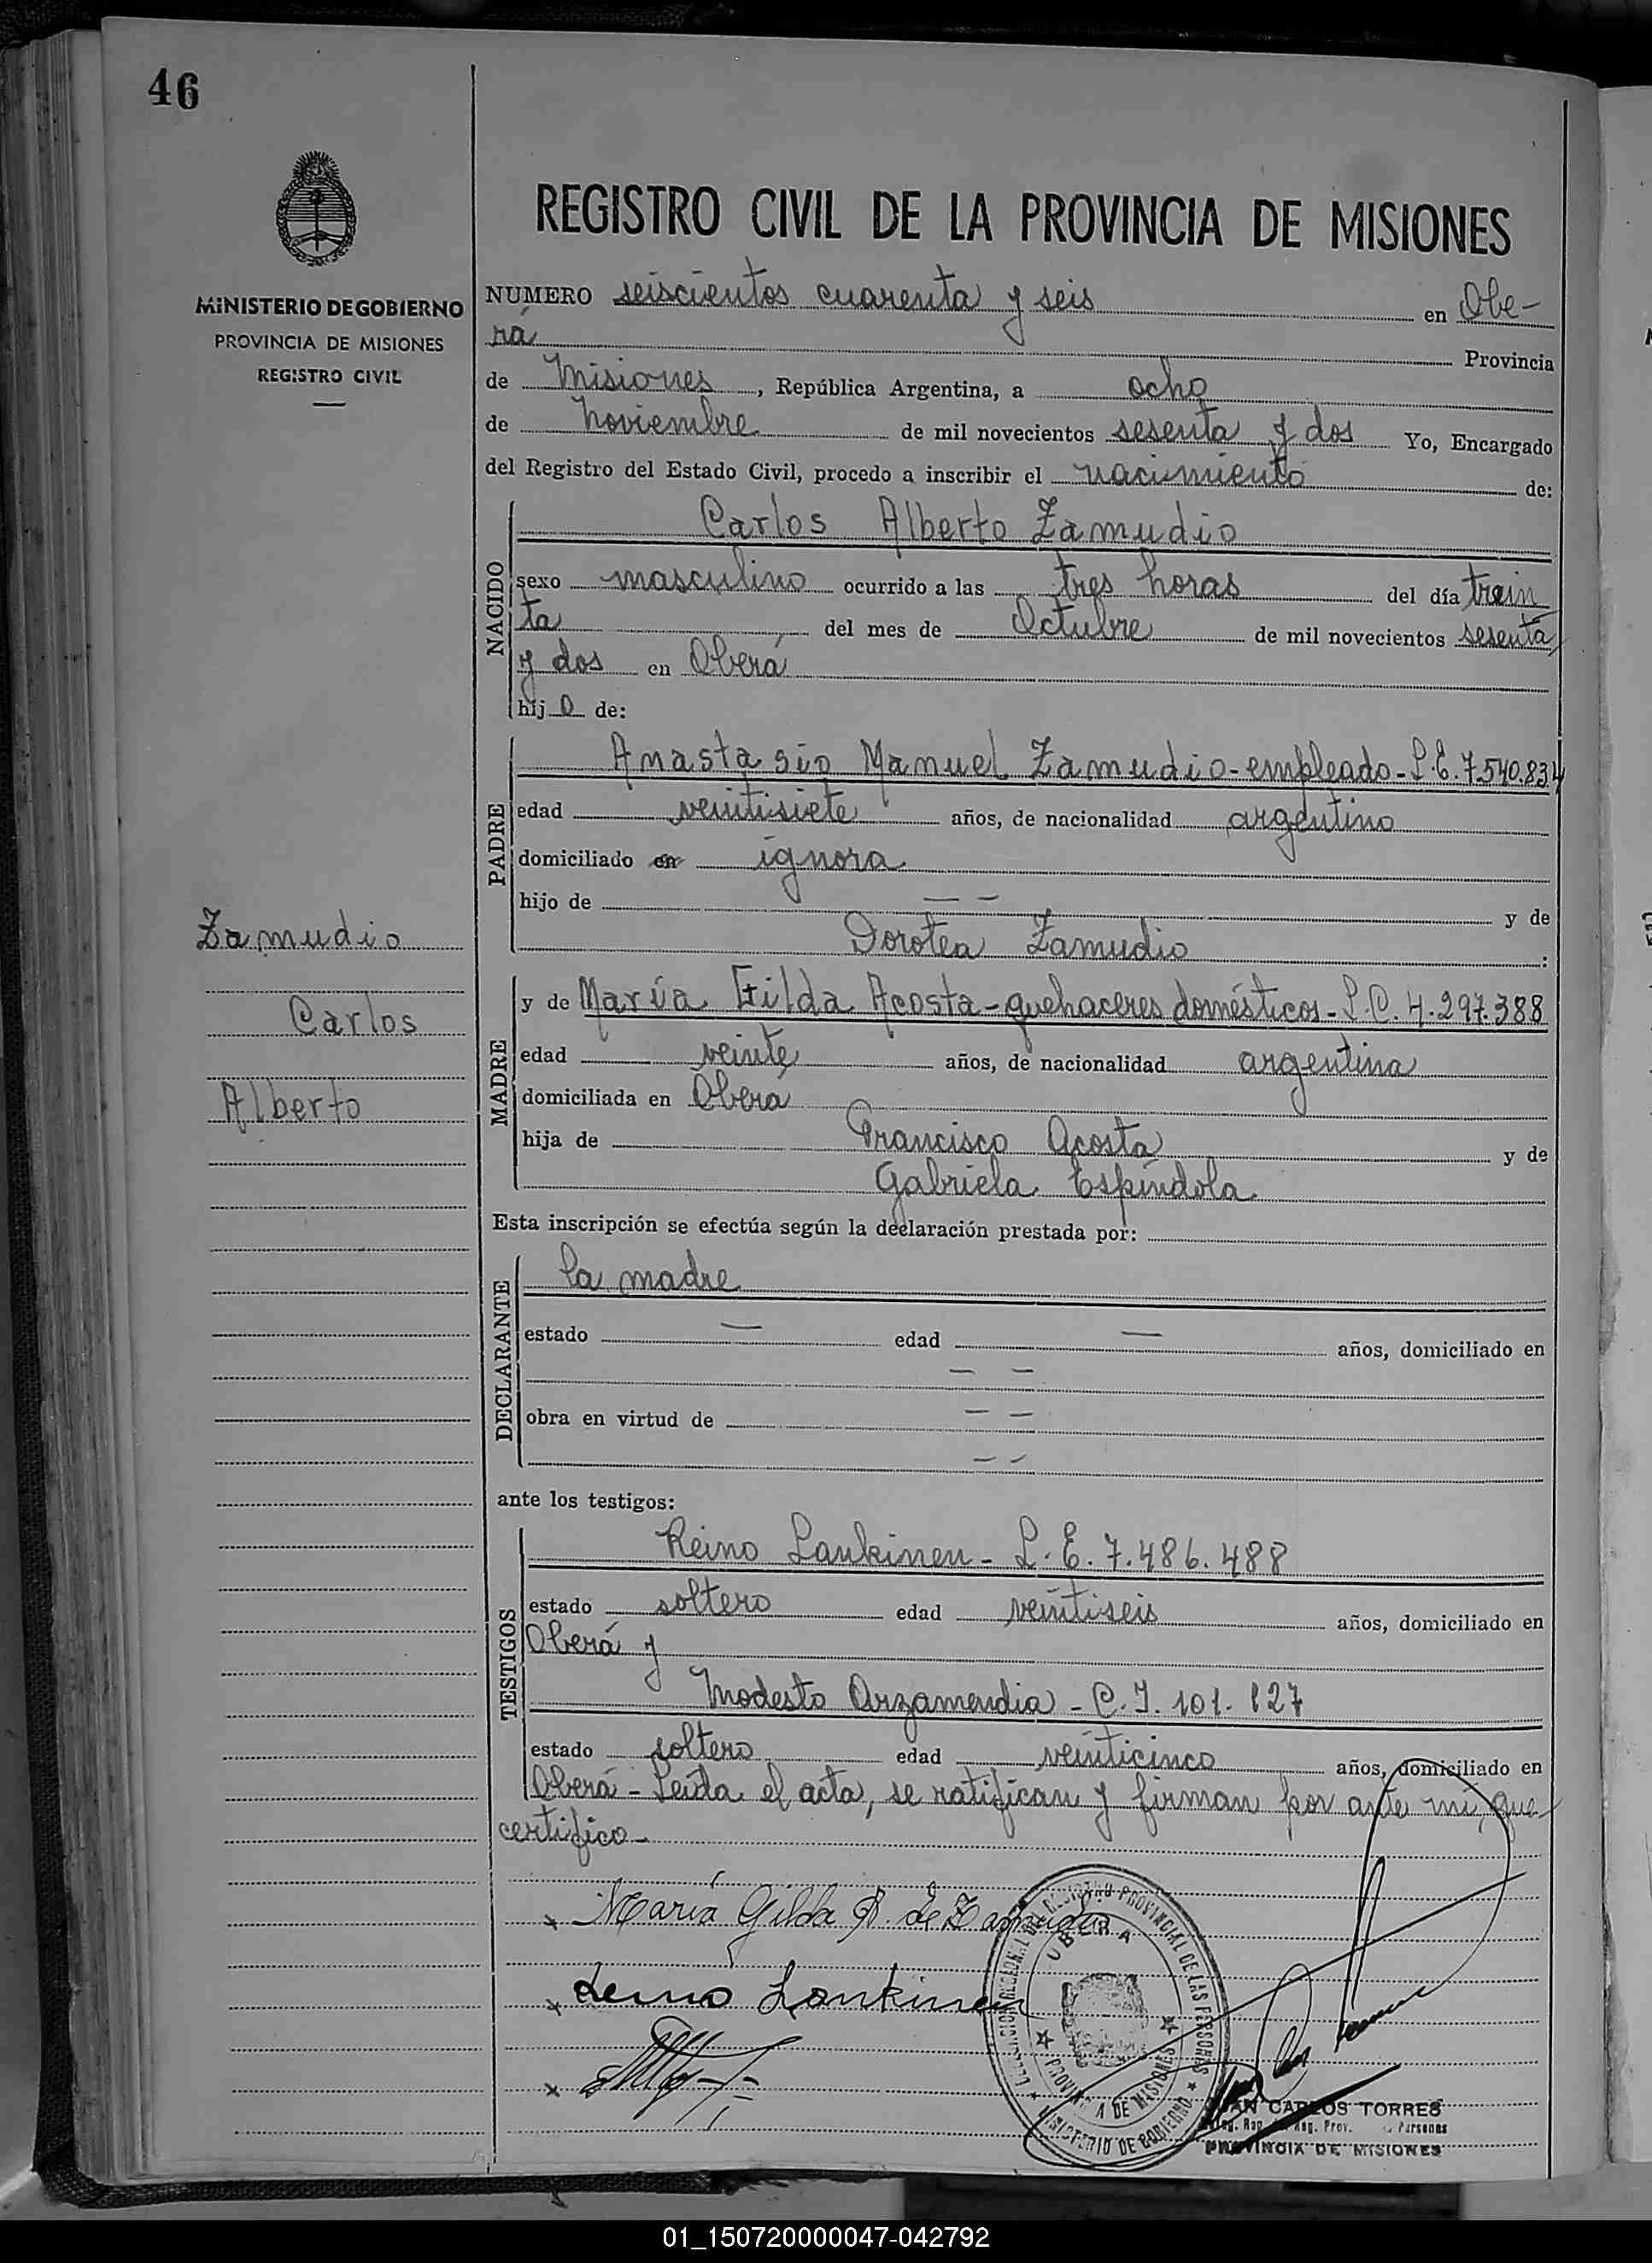 46
MINISTERIO DE GOBIERNO
PROVINCIA DE MISIONES
REGISTRO CIVIL
REGISTRO CIVIL DE LA PROVINCIA DE MISIONES
NUMERO seiscientos cuarenta y seis en Obe-
rá Provincia
de Misiones, República Argentina, a ocho
de Noviembre de mil novecientos sesenta y dos Yo, Encargado
del Registro del Estado Civil, procedo a inscribir el nacimiento de:
NACIDO
Carlos Alberto Zamudio
sexo masculino ocurrido a las tres horas del día trein
ta del mes de Octubre de mil novecientos sesenta
y dos en Oberá
hijo de:
PADRE
Anastasio Manuel Zamudio-empleado-L.E.7.540.834
edad veintisiete años, de nacionalidad argentino
domiciliado en ignora
hijo de — — y de
Dorotea Zamudio :
Zamudio
Carlos
Alberto
MADRE
y de María Gilda Acosta-quehaceres domésticos-L.C. 4.297.388
edad veinte años, de nacionalidad argentina
domiciliada en Oberá
hija de Francisco Acosta y de
Gabriela Espíndola
Esta inscripción se efectúa según la declaración prestada por:
DECLARANTE
la madre
estado — edad — años, domiciliado en
— —
obra en virtud de — —
— —
ante los testigos:
TESTIGOS
Reino Lankinen- L.E. 7.486.488
estado soltero edad veintiseis años, domiciliado en
Oberá y
Modesto Arzamendia - C.I. 101.127
estado soltero edad veinticinco años, domiciliado en
Oberá - Leída el acta, se ratifican y firman por ante mi, que
certifico-
x María Gilda A. de Zamudio
x Reino Lankinen
x
REGISTRO PROVINCIAL DE LAS PERSONAS
OBERA
PROVINCIA DE MISIONES
MINISTERIO DE GOBIERNO
JUAN CARLOS TORRES
PROVINCIA DE MISIONES
01_150720000047-042792